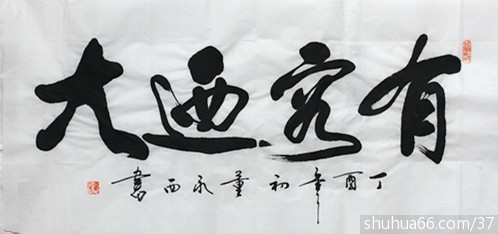 有容迺大
丁酉年初董永西書
shuhua66.com/37